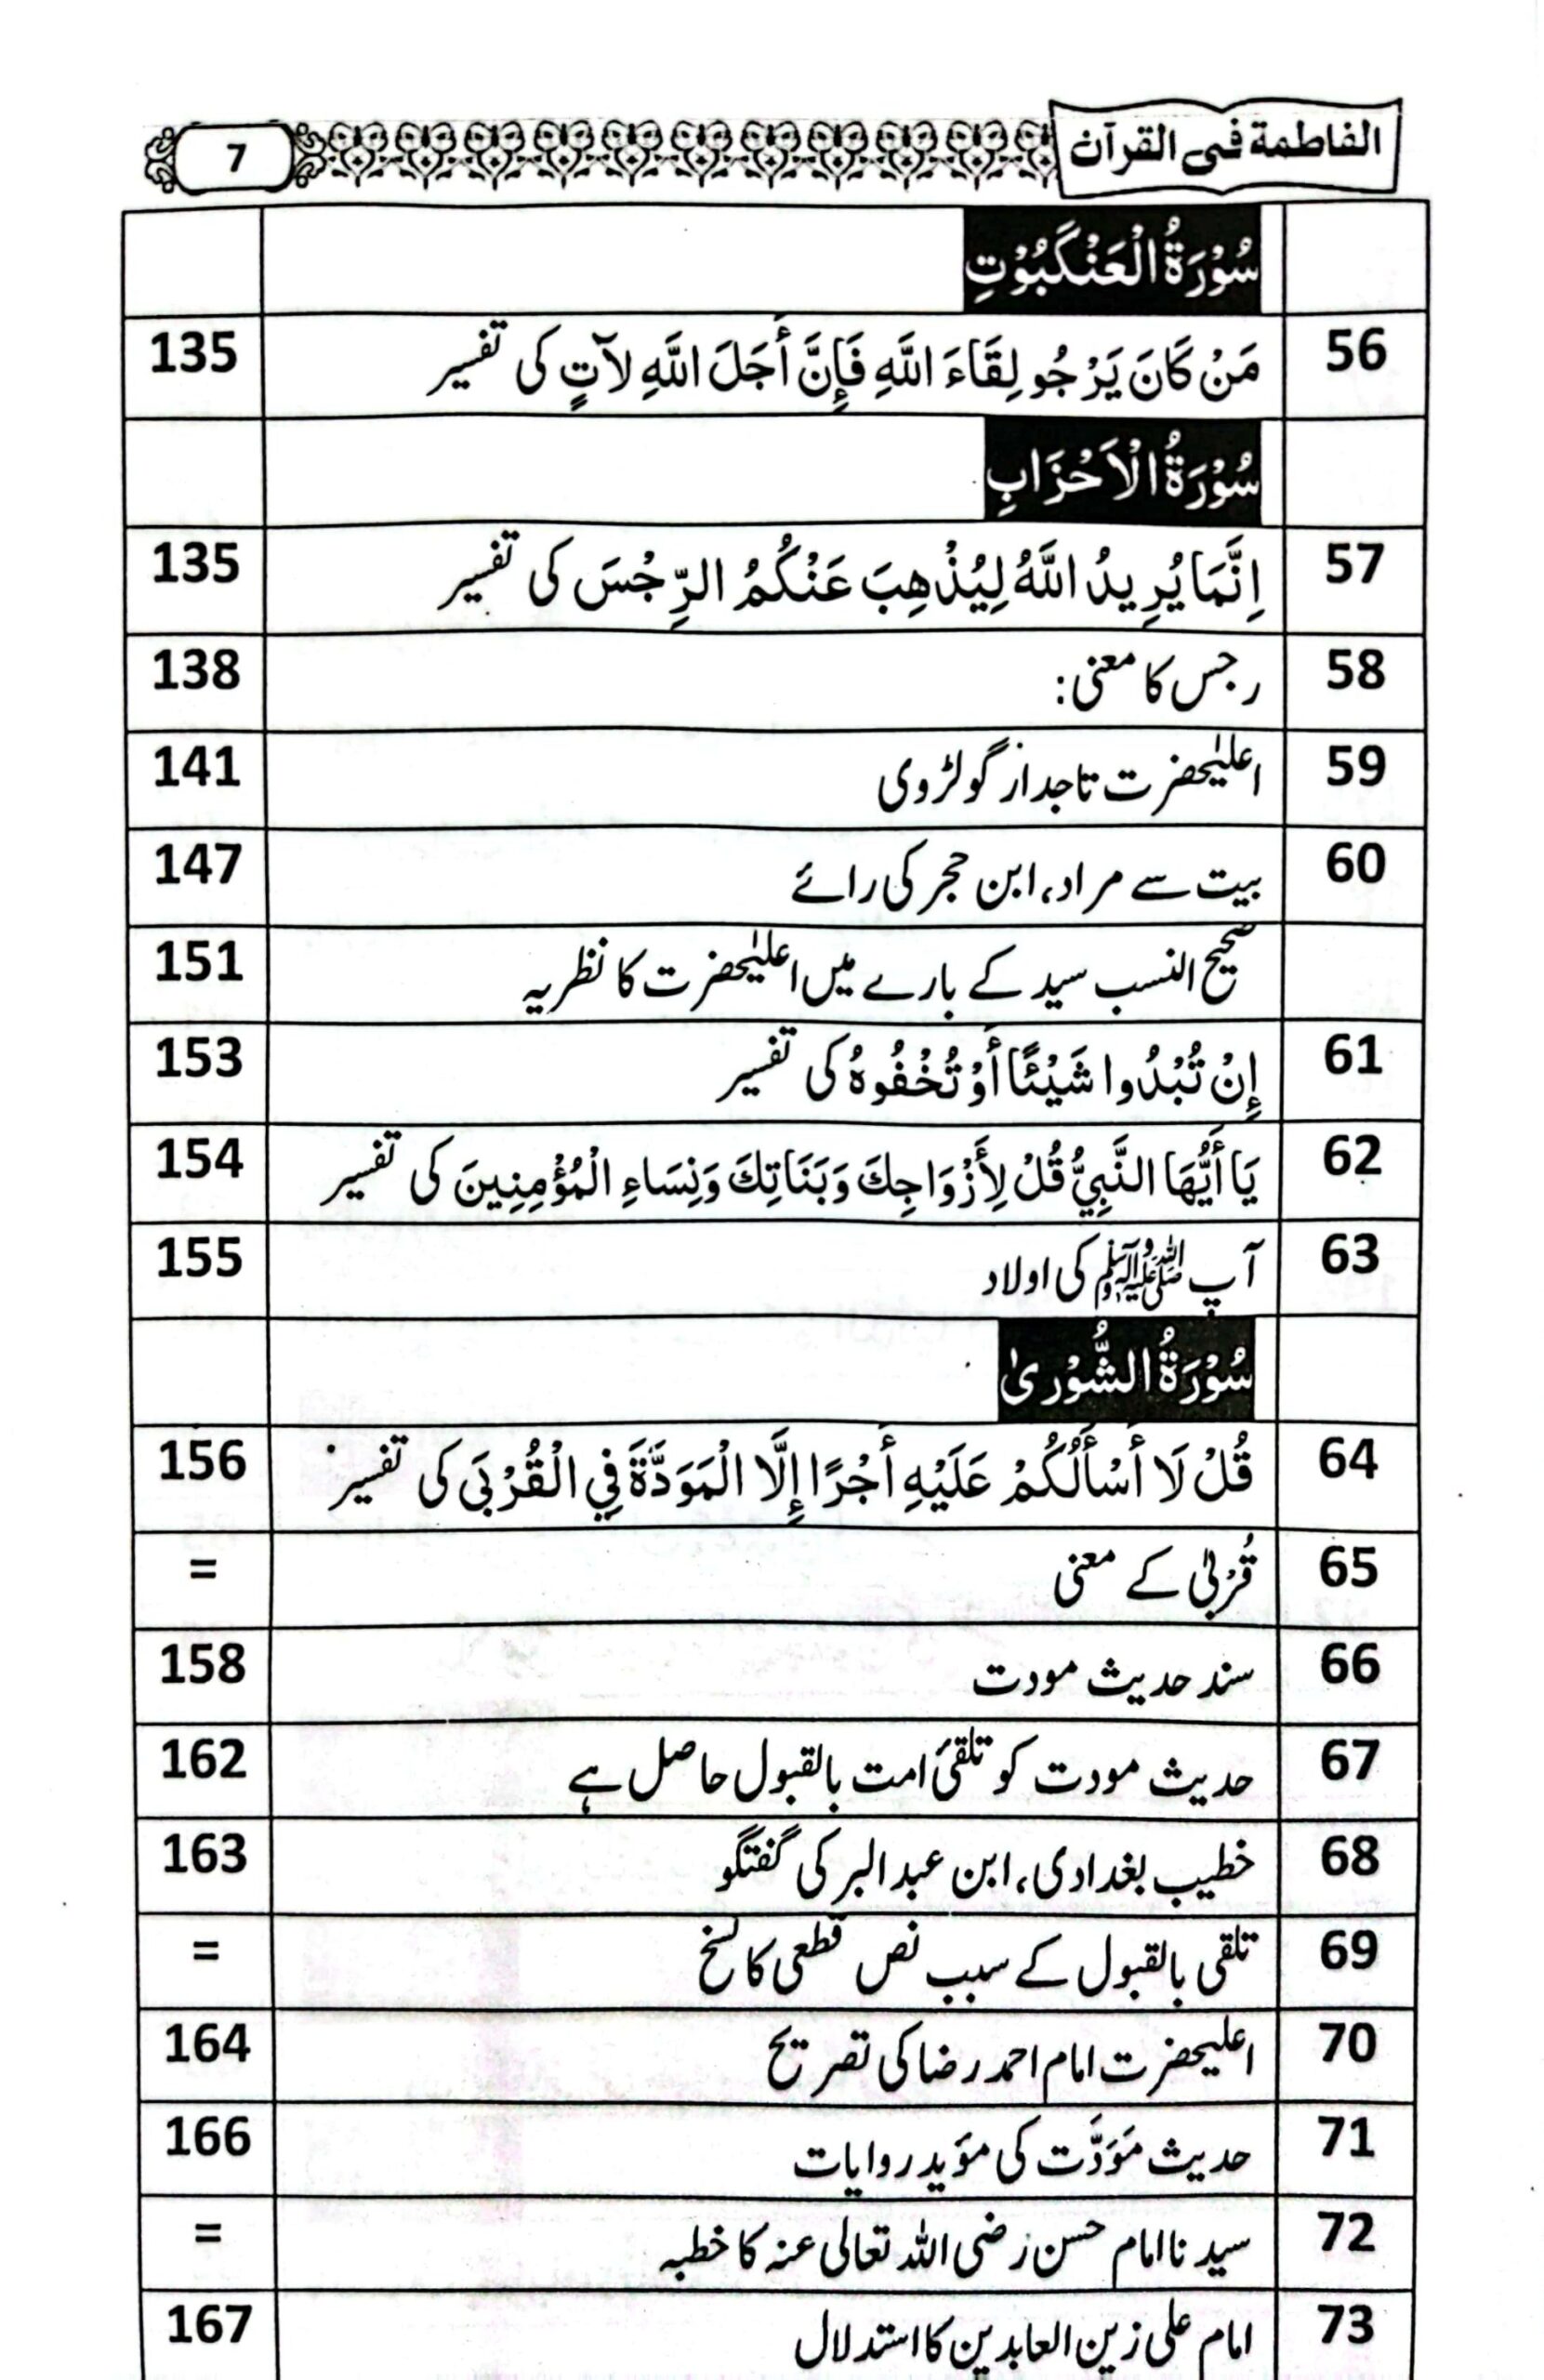 الفاطمة فی القرآن 7
سُوْرَۃُ الْعَنْکَبُوْتِ
56 مَنْ كَانَ يَرْجُو لِقَاءَ اللَّهِ فَإِنَّ أَجَلَ اللَّهِ لآتٍ کی تفسیر 135
سُوْرَۃُ الْاَحْزَابِ
57 اِنَّمَا يُرِيدُ اللَّهُ لِيُذْهِبَ عَنْكُمُ الرِّجْسَ کی تفسیر 135
58 رجس کا معنی: 138
59 اعلیٰحضرت تاجدار گولڑوی 141
60 بیت سے مراد، ابن حجر کی رائے 147
صحیح النسب سید کے بارے میں اعلیٰحضرت کا نظریہ 151
61 إِنْ تُبْدُوا شَيْئًا أَوْ تُخْفُوهُ کی تفسیر 153
62 يَا أَيُّهَا النَّبِيُّ قُلْ لِأَزْوَاجِكَ وَبَنَاتِكَ وَنِسَاءِ الْمُؤْمِنِينَ کی تفسیر 154
63 آپ ﷺ کی اولاد 155
سُوْرَۃُ الشُّوْریٰ
64 قُلْ لَا أَسْأَلُكُمْ عَلَيْهِ أَجْرًا إِلَّا الْمَوَدَّةَ فِي الْقُرْبَى کی تفسیر 156
65 قُرْبیٰ کے معنی =
66 سند حدیث مودت 158
67 حدیث مودت کو تلقیٔ امت بالقبول حاصل ہے 162
68 خطیب بغدادی، ابن عبدالبر کی گفتگو 163
69 تلقی بالقبول کے سبب نص قطعی کا نسخ =
70 اعلیحضرت امام احمد رضا کی تصریح 164
71 حدیث مَوَدَّت کی مؤید روایات 166
72 سیدنا امام حسن رضی اللہ تعالی عنہ کا خطبہ =
73 امام علی زین العابدین کا استدلال 167